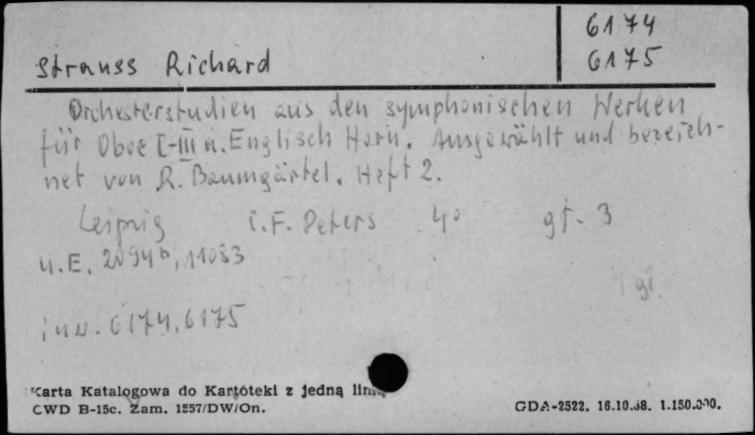 6174
Strauss Richard 6175
Orchesterstudien aus den symphonischen Werken
für Oboe I-III u. Englisch Horn. Ausgewählt und bezeich-
net von R. Baumgärtel. Heft 2.
Leipzig C.F. Peters 4° gł. 3
U.E. 2094b, 11083
inw. 6174, 6175
Karta Katalogowa do Kartoteki z jedną
CWD B-15c. Zam. 1557/DW/On. GDA-2522. 16.10.68. 1.150.000.